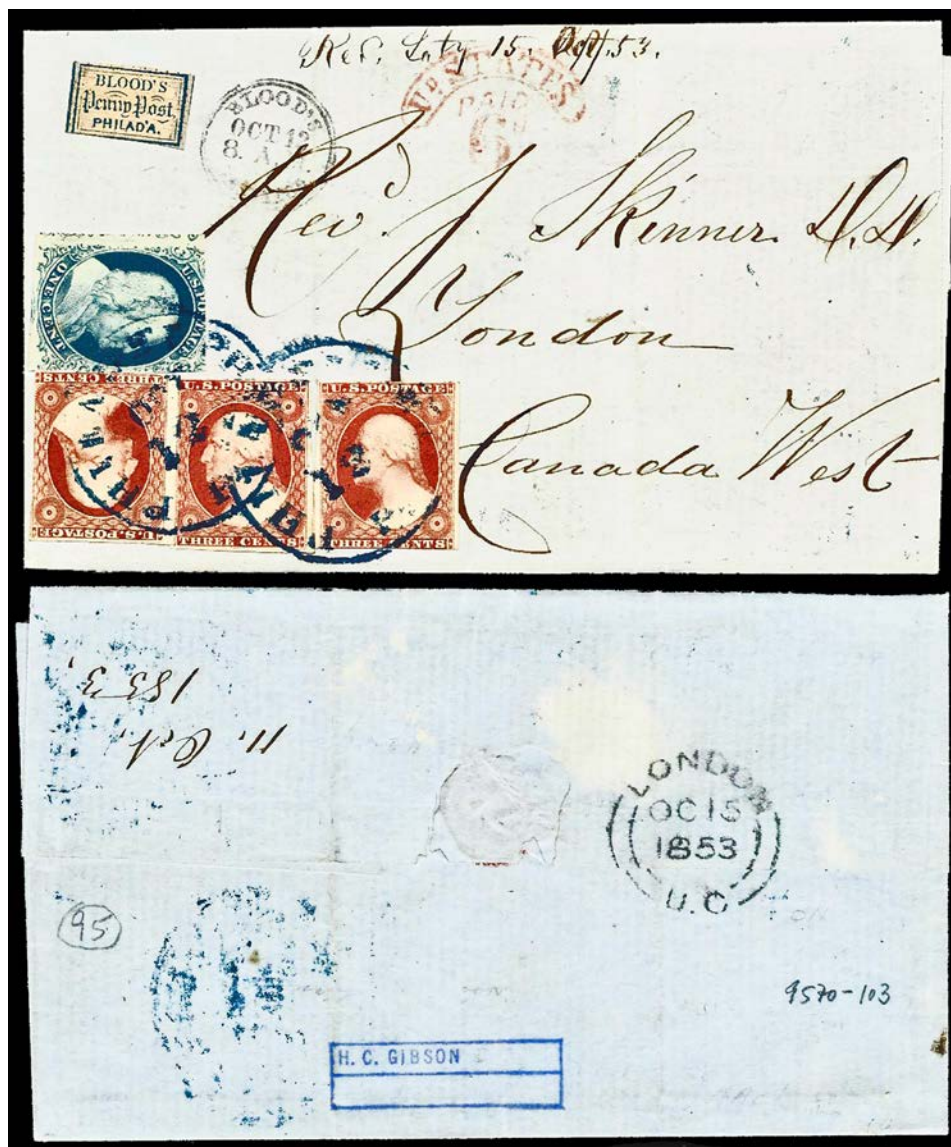 Rec'd. L. ty 15. Oct. 53.
BLOOD'S
Penny Post,
PHILAD'A.
BLOOD'S
OCT 12
8. A.
UD STATES
PAID
6
Rev.d J. Skinner D.D.
London
Canada West
U.S. POSTAGE
ONE CENT
THREE CENTS
U.S. POSTAGE
U.S. POSTAGE
THREE CENTS
U.S. POSTAGE
THREE CENTS
11. Oct.
1853,
LONDON
OC 15
1853
U.C
95
9570-103
H. C. GIBSON